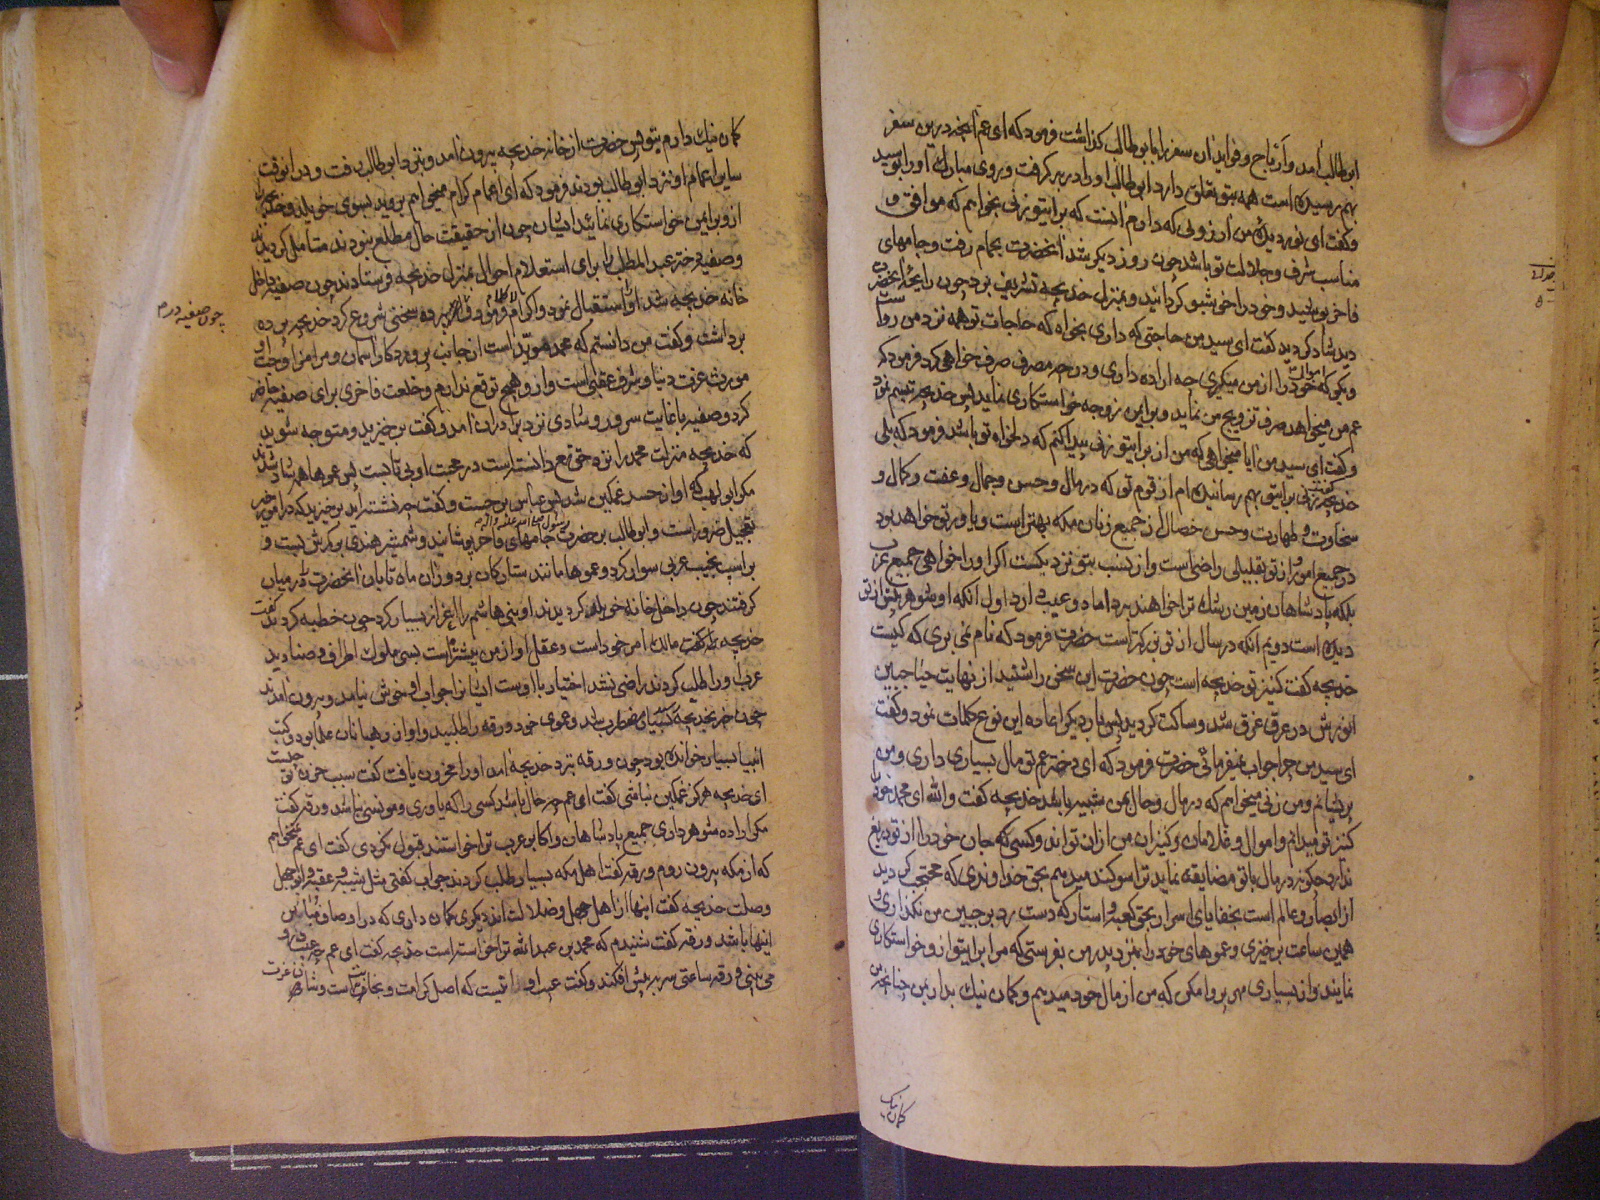 ابوطالب آمد و ارباح و فواید آن سفر را با بوطالب گذاشت فرمود که ای عم آنچه درین سفر
بهم رسیده است همه بتو تعلق دارد ابوطالب او را در بر گرفت و روی مبارک او را بوسید
و گفت ای نور دیدهٔ من آرزوئی که دارم آنست که برای تو زنی بخواهم که موافق و
مناسب شرف و جلالت تو باشد چون روز دیگر شد آنحضرت بحمام رفت و جامهای
فاخر پوشید و خود را خوشبو گردانید و بمنزل خدیجه تشریف برد چون خدیجه آنحضرت
دید شاد گردید گفت ای سید من حاجتی که داری بخواه که حاجات تو همه نزد من رواست
و بگو که اموالت خود را از من میگیری چه اراده داری و در چه مصرف صرف خواهی کرد فرمود که
عم من میخواهد صرف تزویج من نماید و برای من زوجه خواستگاری نماید پس خدیجه تبسم نمود
و گفت ای سید من آیا میخواهی که من از برای تو زنی پیدا کنم که دلخواه تو باشد فرمود که بلی
خدیجه گفت زنی برای تو بهم رسانیده ام از قوم تو که در مال و حسن و جمال و عفت و کمال و
سخاوت و طهارت و حسن خصال از جمیع زنان مکه بهتر است و یاور تو خواهد بود
در جمیع امور و از تو بقلیلی راضی است و از نسب بتو نزدیکست اگر او را خواهی جمیع عرب
بلکه پادشاهان زمین رشک ترا خواهند برد اما دو عیب دارد اول آنکه او شوهر پیش از تو
دیده است دویم آنکه در سال از تو بزرگتر است حضرت فرمود که نام نمی بری که کیست
خدیجه گفت کنیز تو خدیجه است چون حضرت این سخن را شنید از نهایت حیا جبین
انورش در عرق غرق شد و ساکت گردید پس بار دیگر اعاده این نوع کلمات نمود و گفت
ای سید من چرا جواب نمیفرمائی حضرت فرمود که ای دختر عم تو مال بسیاری داری و من
پریشانم و من زنی میخواهم که در مال و حال بمن شبیه باشد خدیجه گفت والله ای محمد خود را
کنیز تو میدانم و اموال و غلامان و کنیزان من از آن تو اند و کسی که جان خود را از تو دریغ
ندارد چگونه در مال با تو مضایقه نماید ترا سوگند میدهم بحق خداوندی که محتجب گردید
از ابصار و عالم است بخفایای اسرار بحق کعبه و استار که دست رد بر جبین من نگذاری و
همین ساعت برخیزی و عموهای خود را بنزد پدر من بفرستی که مرا برای تو از او خواستگاری
نمایند و از بسیاری مهر پروا مکن که من از مال خود میدهم و گمان نیک بدار بمن چنانچه من
گمان نیک
گمان نیک دارم بتو پس حضرت از خانه خدیجه بیرون آمد و بنزد ابوطالب رفت و در آنوقت
سایر اعمام او نزد ابوطالب بودند فرمود که ای اعمام کرام میخواهم بروید بسوی خویلد و خدیجه را
از او برای من خواستگاری نمائید ایشان چون از حقیقت حال مطلع نبودند متأمل گردیدند
و صفیه دختر عبدالمطلب را برای استعلام احوال بمنزل خدیجه فرستادند چون صفیه داخل
خانه خدیجه شد او را استقبال نمود و اکرام فرمود و پرده سخنی شروع کرد خدیجه پرده
چون صفیه درم
برداشت و گفت من دانستم که محمد مؤید است از جانب پروردگار آسمان و مرا مزاوجت او
مورث عزت دنیا و شرف عقبی است و از او هیچ توقع ندارم و خلعت فاخری برای صفیه حاضر
کرد و صفیه با غایت سرور و شادی نزد برادران آمد و گفت برخیزید و متوجه شوید
که خدیجه منزلت محمد را نزد حق تعالی دانسته است در محبت او بی تابست پس عموها همه شاد شدند
مگر ابولهب که او از حسد غمگین شد پس عباس برجست و گفت چه نشسته اید برخیزید که در امور خیر
تعجیل ضرور است و ابوطالب بر حضرت رسول صلی الله علیه و آله جامهای فاخر پوشانید و شمشیر هندی بر کمرش بست و
بر اسب نجیب عربی سوار کرد و عموها مانند ستارگان بر دور آن ماه تابان آنحضرت را در میان
گرفتند چون داخل خانه خویلد گردیدند او بنی هاشم را اعزاز بسیار کرد چون خطبه کردند گفت
خدیجه مالک امر خود است و عقل او از من بیشتر است بسی ملوک اطراف و صنادید
عرب او را طلب کردند راضی نشد اختیار با اوست ایشانرا جواب او خوش نیامد و بیرون آمدند
چون خبر بخدیجه رسید بسیار مضطرب شد و عموی خود ورقه را طلبید و او از رهبانان علما بود و کتب
انبیا بسیار خوانده بود چون ورقه بنزد خدیجه آمد او را محزون یافت گفت سبب حزن تو چیست
ای خدیجه هرگز غمگین نباشی گفت ای عم چه حال باشد کسی را که یاوری و مونسی نباشد ورقه گفت
مگر اراده شوهر داری جمیع پادشاهان و اکابر عرب ترا خواستند قبول نکردی گفت ای عم نمیخواهم
که از مکه بیرون روم ورقه گفت اهل مکه بسیار طلب کردند جواب گفتی مثل شیبه و عقبه و ابوجهل
وصلت خدیجه گفت اینها از اهل جهل و ضلالت اند دیگری گمان داری که در اوصاف مباین
اینها باشد ورقه گفت شنیدم که محمد بن عبدالله ترا خواسته است خدیجه گفت ای عم چه عیب در او
می بینی ورقه ساعتی سر به پیش افکند و گفت عیب او آنست که اصل کرامت و نجابت است